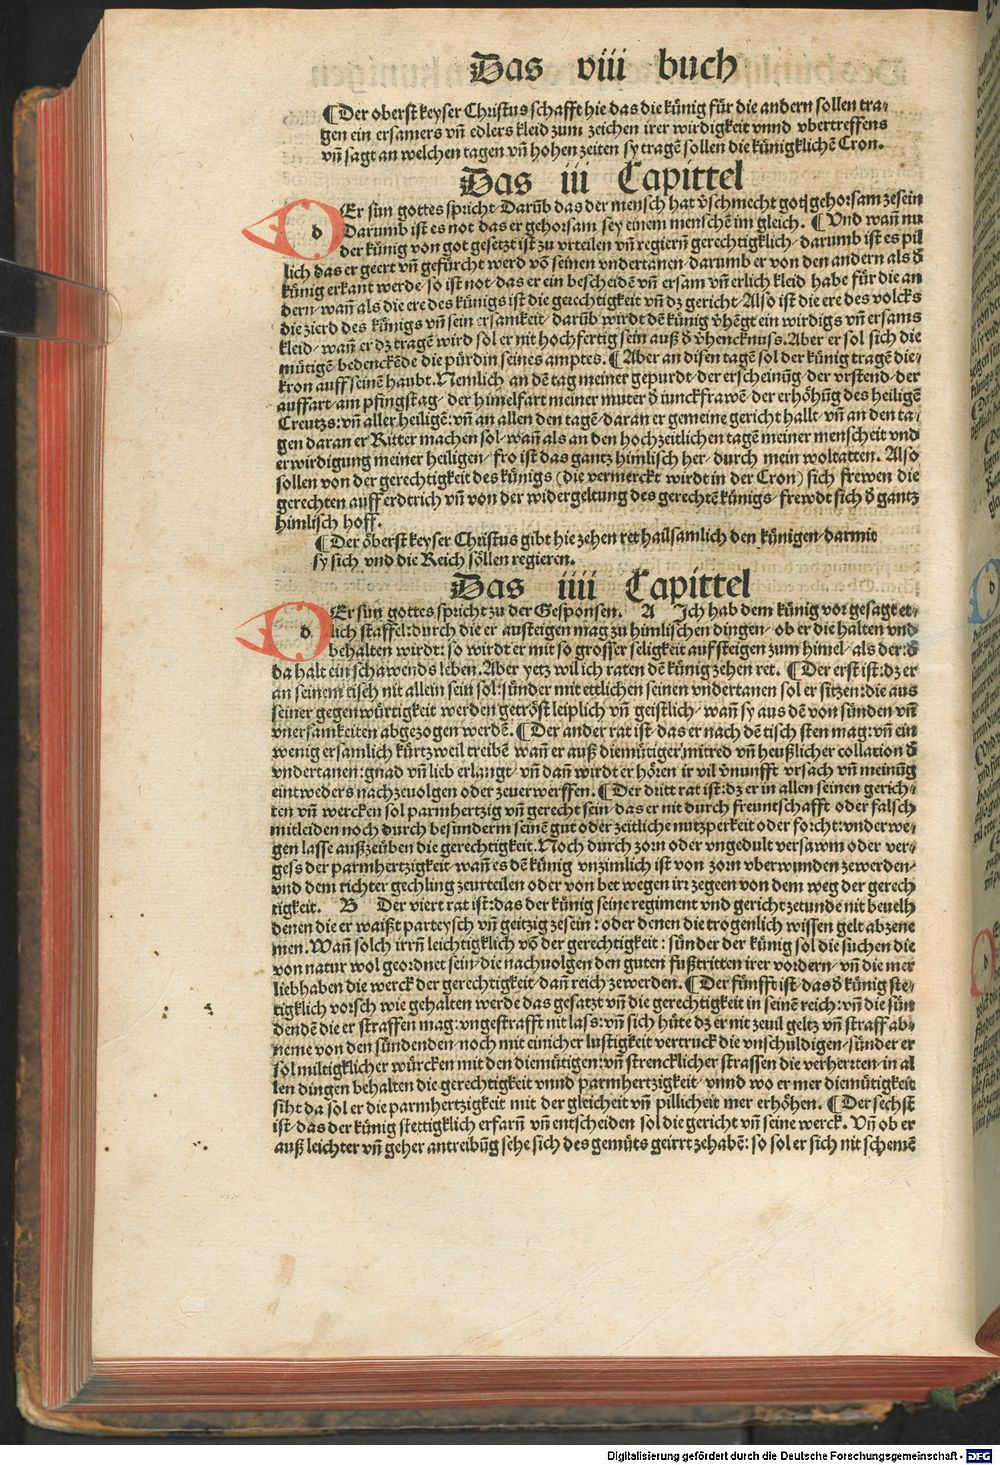 Das viii buch
¶ Der oberst keyser Christus schafft hie das die künig für die andern sollen tra-
gen ein ersamers vñ edlers kleid zum zeichen irer wirdigkeit vnnd vbertreffens
vñ sagt an welchen tagen vñ hohen zeiten sy tragē sollen die künigklichē Cron.
Das iii Capittel
dEr sun gottes spricht. Darūb das der mensch hat v̄schmecht gotz gehorsam zesein
Darumb ist es not das er gehorsam sey einem menschē im gleich. ¶ Vnd wañ nu
der künig von got gesetzt ist zu vrteilen vñ regiern̄ gerechtigklich/ darumb ist es pil
lich das er geert vñ gefürcht werd vō seinen vndertanen/ darumb er von den andern als d̄
künig erkant werde/ so ist not/ das er ein bescheidē vñ ersam vñ erlich kleid habe für die an
dern/ wañ als die ere des künigs ist die gerechtigkeit vñ dz gericht/ Also ist die ere des volcks
die zierd des künigs vñ sein ersamkeit/ darūb wirdt dē künig v̄hēgt ein wirdigs vñ ersams
kleid/ wañ er dz tragē wird sol er nit hochfertig sein auß d̄ v̄hencknuss. Aber er sol sich die
mütigē bedenckēde die pürdin seines amptes. ¶ Aber an disen tagē sol der künig tragē die/
kron auff seinē haubt. Nemlich an dē tag meiner gepurdt/ der erscheinūg/ der vrstend/ der
auffart/ am pfingstag/ der himelfart meiner muter d̄ iunckfrawē/ der erhöhūg des heiligē
Creutzs: vñ aller heiligē: vñ an allen den tagē/ daran er gemeine gericht hallt/ vñ an den ta/
gen daran er Ritter machen sol/ wañ als an den hochzeitlichen tagē meiner menscheit vnd
erwirdigung meiner heiligen/ fro ist das gantz himlisch her/ durch mein woltatten. Also
sollen von der gerechtigkeit des künigs (die vermerckt wirdt in der Cron) sich frewen die
gerechten auff erdtrich vñ von der widergeltung des gerechtē künigs/ frewdt sich d̄ gantz
himlisch hoff.
¶ Der öberst keyser Christus gibt hie zehen ret hailsamlich den künigen/ darmit
sy sich vnd die Reich söllen regieren.
Das iiii Capittel
dEr sun gottes spricht zu der Gesponsen. A Ich hab dem künig vor gesagt et/
lich staffel: durch die er austeigen mag zu himlischen dingen/ ob er die halten vnd
behalten wirdt: so wirdt er mit so grosser seligkeit auf steigen zum himel/ als der: d̄
da halt ein schawends leben. Aber yetz wil ich raten dē künig zehen ret. ¶ Der erst ist: dz er
an seinem tisch nit allein sein sol: sünder mit ettlichen seinen vndertanen sol er sitzen: die aus
seiner gegenwürtigkeit werden getröst leiplich vñ geistlich/ wañ sy aus dē von sünden vñ
vnersamkeiten abgezogen werdē. ¶ Der ander rat ist/ das er nach dē tisch sten mag: vñ ein
wenig ersamlich kürtzweil treibē wañ er auß diemütiger mitred vñ heußlicher collation d̄
vndertanen: gnad vñ lieb erlangt/ vñ dañ wirdt er hören ir vil v̄nunfft vrsach vñ meinūg
eintweders nachzeuolgen oder zeuerwerffen. ¶ Der dritt rat ist: dz er in allen seinen gerich/
ten vñ wercken sol parmhertzig vñ gerecht sein/ das er nit durch freuntschafft oder falsch
mitleiden noch durch besunderm seinē gut oder zeitliche nutzperkeit oder forcht: vnderwe/
gen lasse außzeüben die gerechtigkeit. Noch durch zorn oder vngedult versawm oder ver/
gess der parmhertzigkeit/ wañ es dē künig vnzimlich ist von zorn vberwunden zewerden/
vnd dem richter gechling zeurteilen oder von bet wegen irr zegeen von dem weg der gerech
tigkeit. B Der viert rat ist: das der künig seine regiment vnd gericht zetunde nit beuelh
denen die er waißt parteysch vñ geitzig zesein: oder denen die trogenlich wissen gelt abzene
men. Wañ solch irrn̄ leichtigklich vō der gerechtigkeit: sünder der künig sol die suchen die
von natur wol geordnet sein/ die nachuolgen den guten fußtritten irer vordern/ vñ die mer
liebhaben die werck der gerechtigkeit/ dañ reich zewerden. ¶ Der fünfft ist/ das d̄ künig ste/
tigklich vorsch wie gehalten werde das gesatzt vñ die gerechtigkeit in seinē reich: vñ die sün
dendē die er straffen mag: vngestrafft nit lass: vñ sich hüte dz er mit zeuil geltz vñ straff ab/
neme von den sündenden/ noch mit einicher lustigkeit vertruck die vnschuldigen/ sünder er
sol miltigklicher würcken mit den diemütigen: vñ strencklicher strassen die verherrten/ in al
len dingen behalten die gerechtigkeit vnnd parmhertzigkeit/ vnnd wo er mer diemütigkeit
siht da sol er die parmhertzigkeit mit der gleicheit vñ pillicheit mer erhöhen. ¶ Der sechst
ist/ das der künig stettigklich erfarn̄ vñ entscheiden sol die gericht vñ seine werck. Vñ ob er
auß leichter vñ geher antreibūg sehe sich des gemüts geirrt zehabē: so sol er sich nit schemē
Digitalisierung gefördert durch die Deutsche Forschungsgemeinschaft - DFG